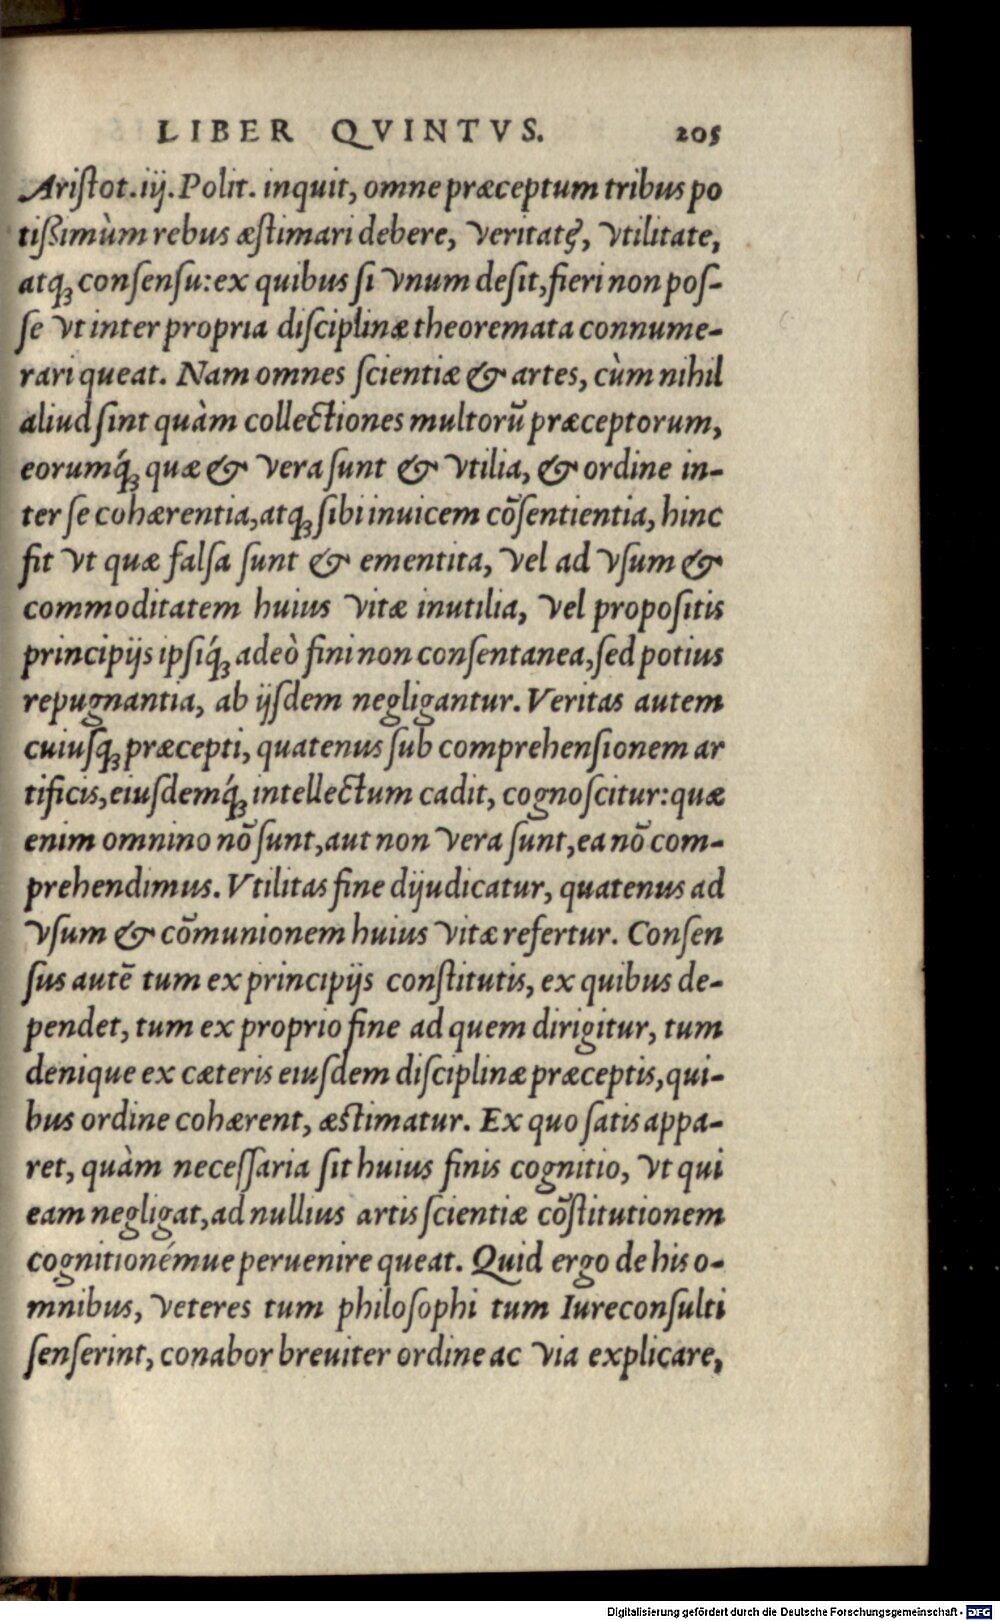 LIBER QVINTVS. 205
Ariſtot. iij. Polit. inquit, omne præceptum tribus po
tiſsimùm rebus æſtimari debere, veritatę, vtilitate,
atqꝫ conſenſu: ex quibus ſi vnum deſit, fieri non poſ-
ſe vt inter propria diſciplinæ theoremata connume-
rari queat. Nam omnes ſcientiæ & artes, cùm nihil
aliud ſint quàm collectiones multorū præceptorum,
eorumq́ꝫ quæ & vera ſunt & vtilia, & ordine in-
ter ſe cohærentia, atqꝫ ſibi inuicem cōſentientia, hinc
fit vt quæ falſa ſunt & ementita, vel ad vſum &
commoditatem huius vitæ inutilia, vel propoſitis
principijs ipſiq́ꝫ adeò fini non conſentanea, ſed potius
repugnantia, ab ijſdem negligantur. Veritas autem
cuiuſqꝫ præcepti, quatenus ſub comprehenſionem ar
tificis, eiuſdemq́ꝫ intellectum cadit, cognoſcitur: quæ
enim omnino nō ſunt, aut non vera ſunt, ea nō com-
prehendimus. Vtilitas fine dijudicatur, quatenus ad
vſum & cōmunionem huius vitæ refertur. Conſen
ſus autē tum ex principijs conſtitutis, ex quibus de-
pendet, tum ex proprio fine ad quem dirigitur, tum
denique ex cæteris eiuſdem diſciplinæ præceptis, qui-
bus ordine cohærent, æſtimatur. Ex quo ſatis appa-
ret, quàm neceſſaria ſit huius finis cognitio, vt qui
eam negligat, ad nullius artis ſcientiæ cōſtitutionem
cognitionémue peruenire queat. Quid ergo de his o-
mnibus, veteres tum philoſophi tum Iureconſulti
ſenſerint, conabor breuiter ordine ac via explicare,
Digitalisierung gefördert durch die Deutsche Forschungsgemeinschaft - DFG